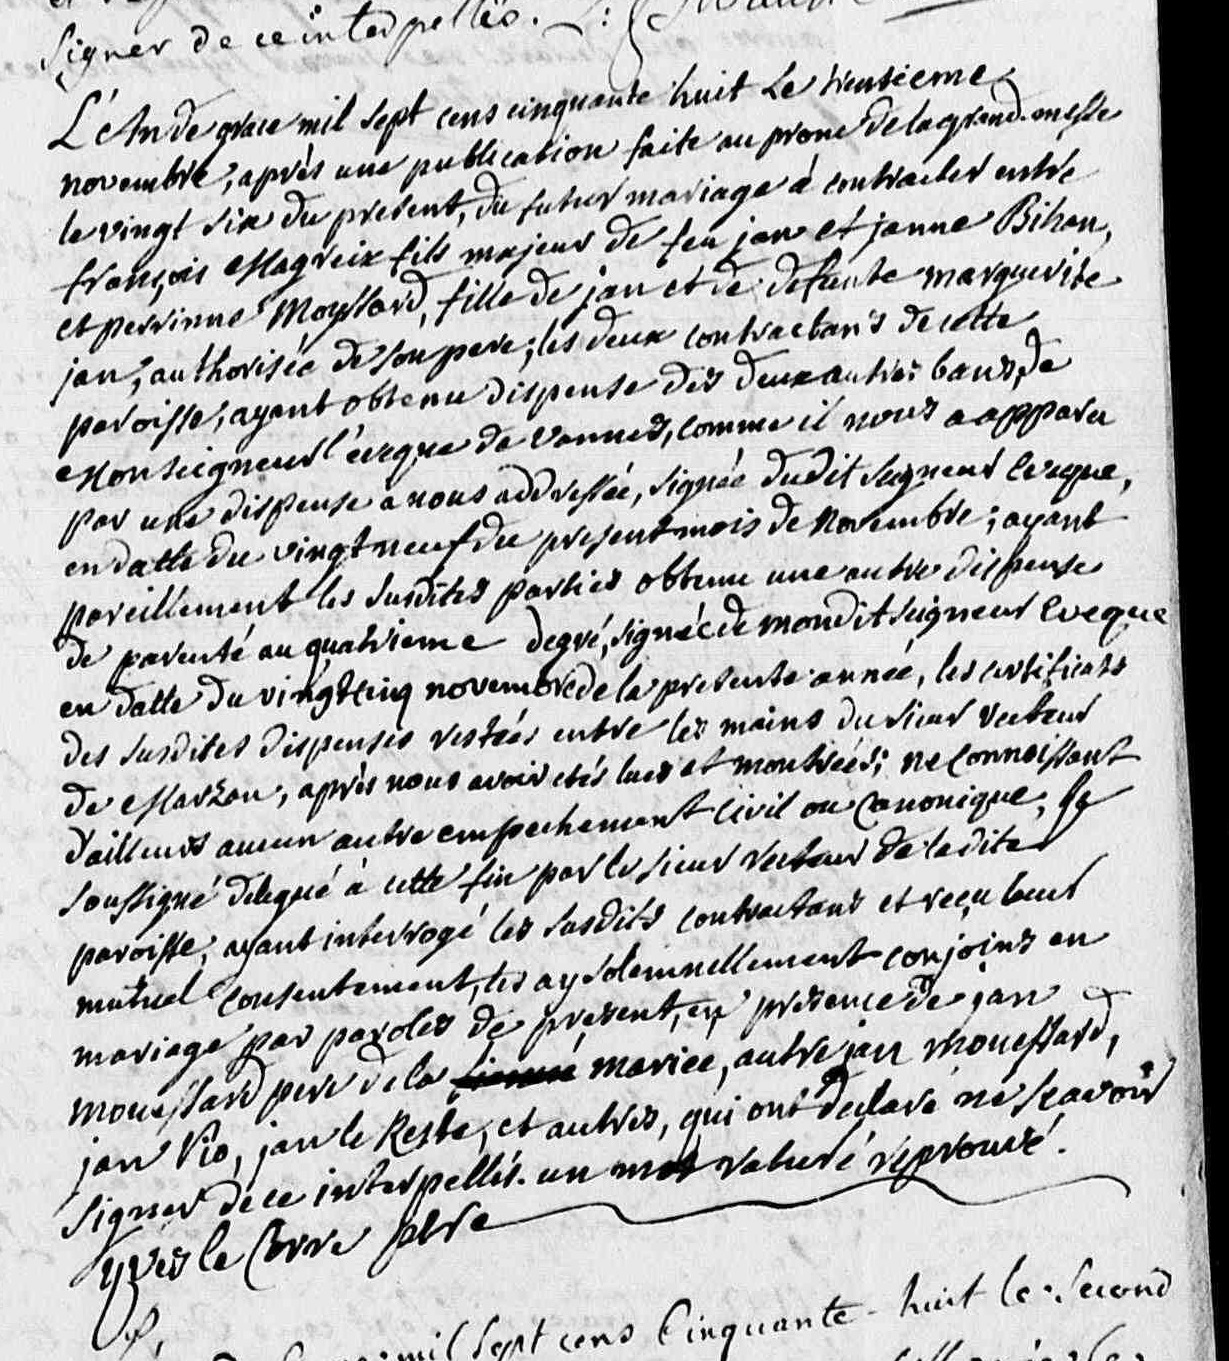 signer de ce interpellés.
L'An de grace mil sept cens cinquante huit Le trentieme
novembre, après une publication faite au prone de la grand-messe
le vingt six du present, du futur mariage à contracter entre
françois Magreix fils majeur de feu jan et janne Bihan,
et perrinne Moyssard, fille de jan et de defunte marguerite
jan, authorisée de son pere; les deux contractans de cette
paroisse, ayant obtenu dispense des deux autres bans, de
Monseigneur l'eveque de Vannes, comme il nous a apparu
par une dispense a nous addressée, signée dudit seigneur Eveque,
en datte du vingt neuf du present mois de Novembre; ayant
pareillement les susdites parties obtenu une autre dispense
de parenté au quatrieme degré, signée de mondit seigneur Eveque
en datte du vingt cinq novembre de la presente année, les certificats
des susdites dispenses restées entre les mains du sieur recteur
de Marzan, après nous avoir etés lues et montrées; ne connoissant
d'ailleurs aucun autre empechement civil ou canonique, Je
soussigné delegué à cette fin par le sieur recteur de ladite
paroisse, ayant interrogé les susdits contractans et reçu leur
mutuel consentement, les ay solemnellement conjoins en
mariage par paroles de present, en presence de jan
mouessard pere de la mariée, autre jan mouessard,
jan Vio, jan le Reste, et autres, qui ont declaré ne scavoir
signer de ce interpellés. un mot raturé reprouvé.
yves le Corre pbre
mil sept cens Cinquante-huit le second